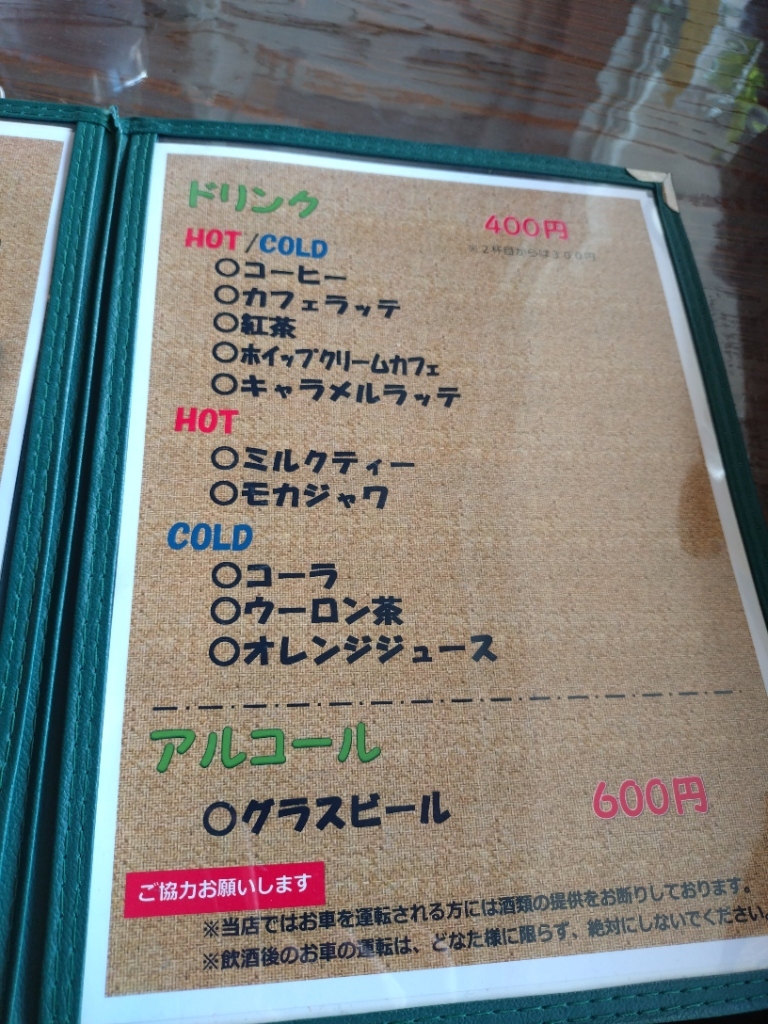 ドリンク
400円
※２杯目からは３００円
HOT/COLD
〇コーヒー
〇カフェラッテ
〇紅茶
〇ホイップクリームカフェ
〇キャラメルラッテ
HOT
〇ミルクティー
〇モカジャワ
COLD
〇コーラ
〇ウーロン茶
〇オレンジジュース
アルコール
〇グラスビール
600円
ご協力お願いします
※当店ではお車を運転される方には酒類の提供をお断りしております。
※飲酒後のお車の運転は、どなた様に限らず、絶対にしないでください。